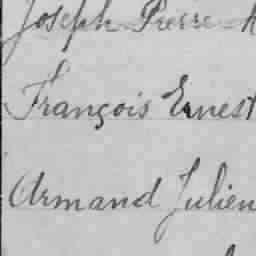 Joseph Pierre
François Ernest
Armand Julien